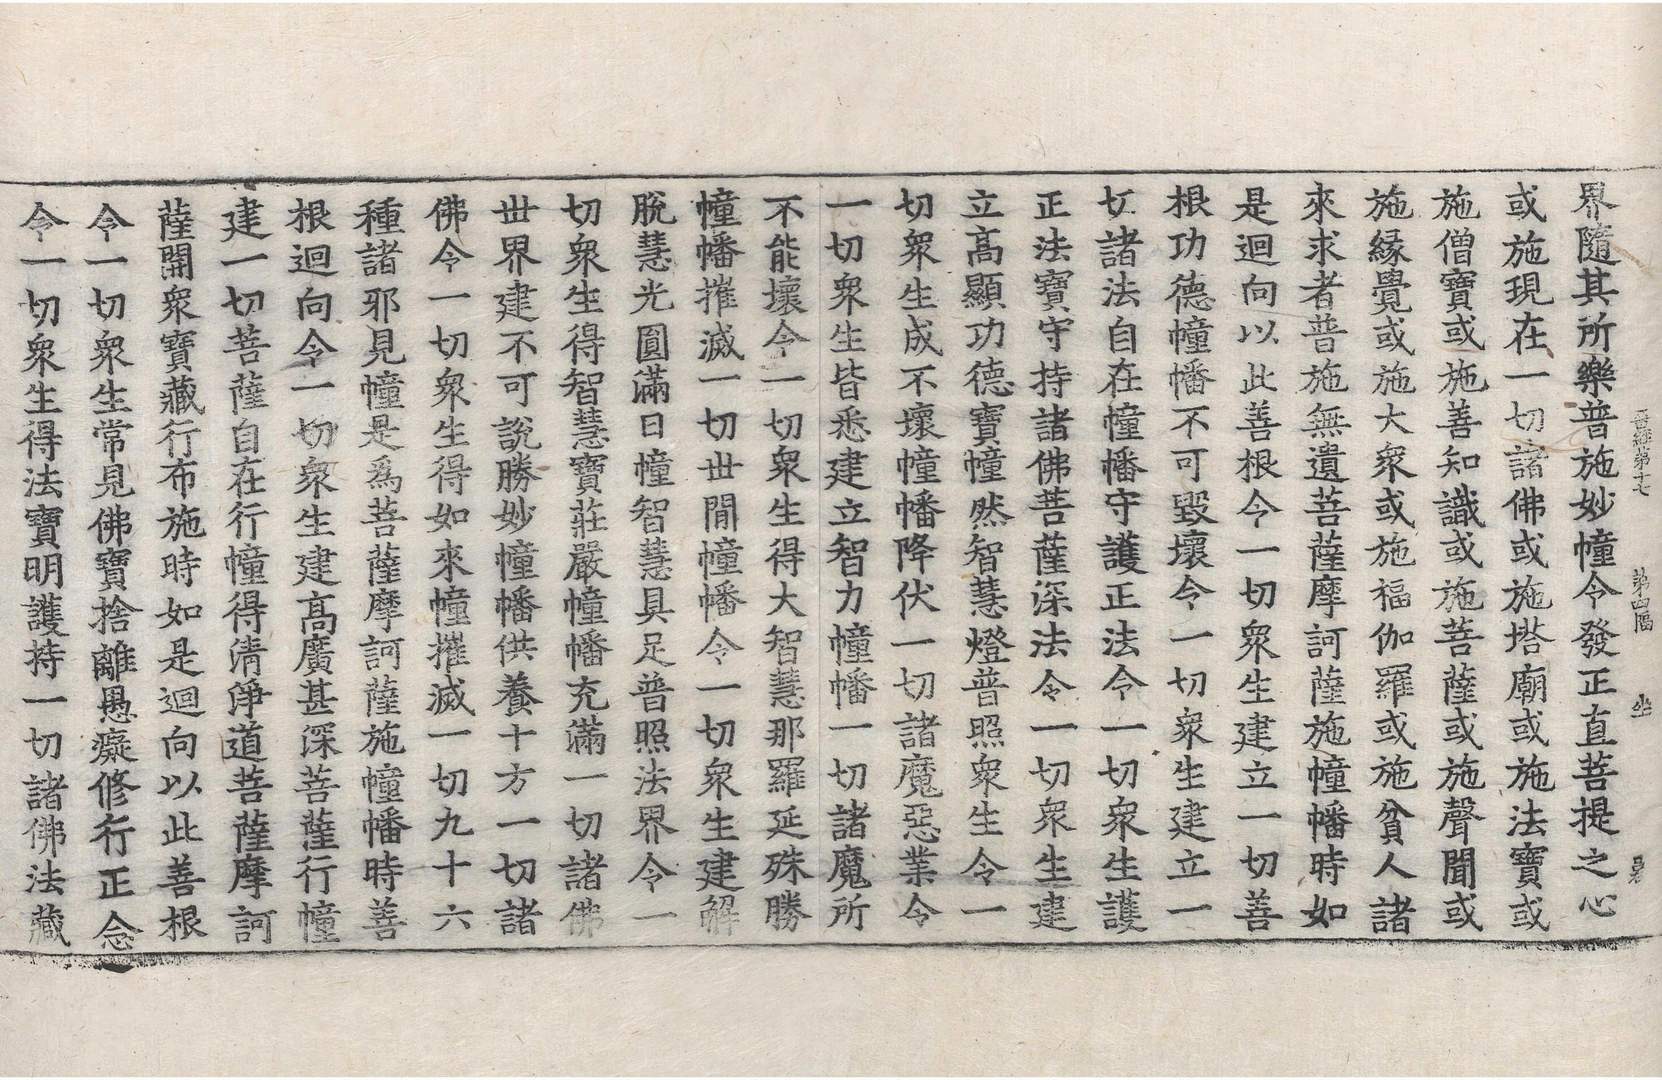 晉經第十七 第四幅 坐
界隨其所樂普施妙幢令發正直菩提之心
或施現在一切諸佛或施塔廟或施法寶或
施僧寶或施善知識或施菩薩或施聲聞或
施緣覺或施大衆或施福伽羅或施貧人諸
來求者普施無遺菩薩摩訶薩施幢幡時如
是迴向以此善根令一切衆生建立一切善
根功德幢幡不可毀壞令一切衆生建立一
切諸法自在幢幡守護正法令一切衆生護
正法寶守持諸佛菩薩深法令一切衆生建
立高顯功德寶幢然智慧燈普照衆生令一
切衆生成不壞幢幡降伏一切諸魔惡業令
一切衆生皆悉建立智力幢幡一切諸魔所
不能壞令一切衆生得大智慧那羅延殊勝
幢幡摧滅一切世閒幢幡令一切衆生建解
脫慧光圓滿日幢智慧具足普照法界令一
切衆生得智慧寶莊嚴幢幡充滿一切諸佛
世界建不可說勝妙幢幡供養十方一切諸
佛令一切衆生得如來幢摧滅一切九十六
種諸邪見幢是爲菩薩摩訶薩施幢幡時善
根迴向令一切衆生建高廣甚深菩薩行幢
建一切菩薩自在行幢得清淨道菩薩摩訶
薩開衆寶藏行布施時如是迴向以此善根
令一切衆生常見佛寶捨離愚癡修行正念
令一切衆生得法寶明護持一切諸佛法藏